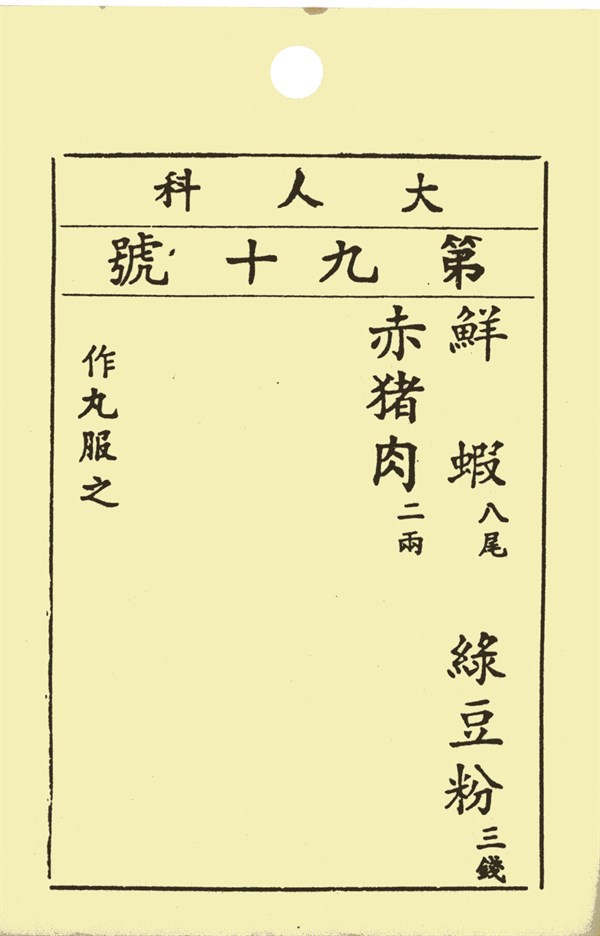 大人科
第九十號
鮮蝦八尾 綠豆粉三錢
赤猪肉二兩
作丸服之